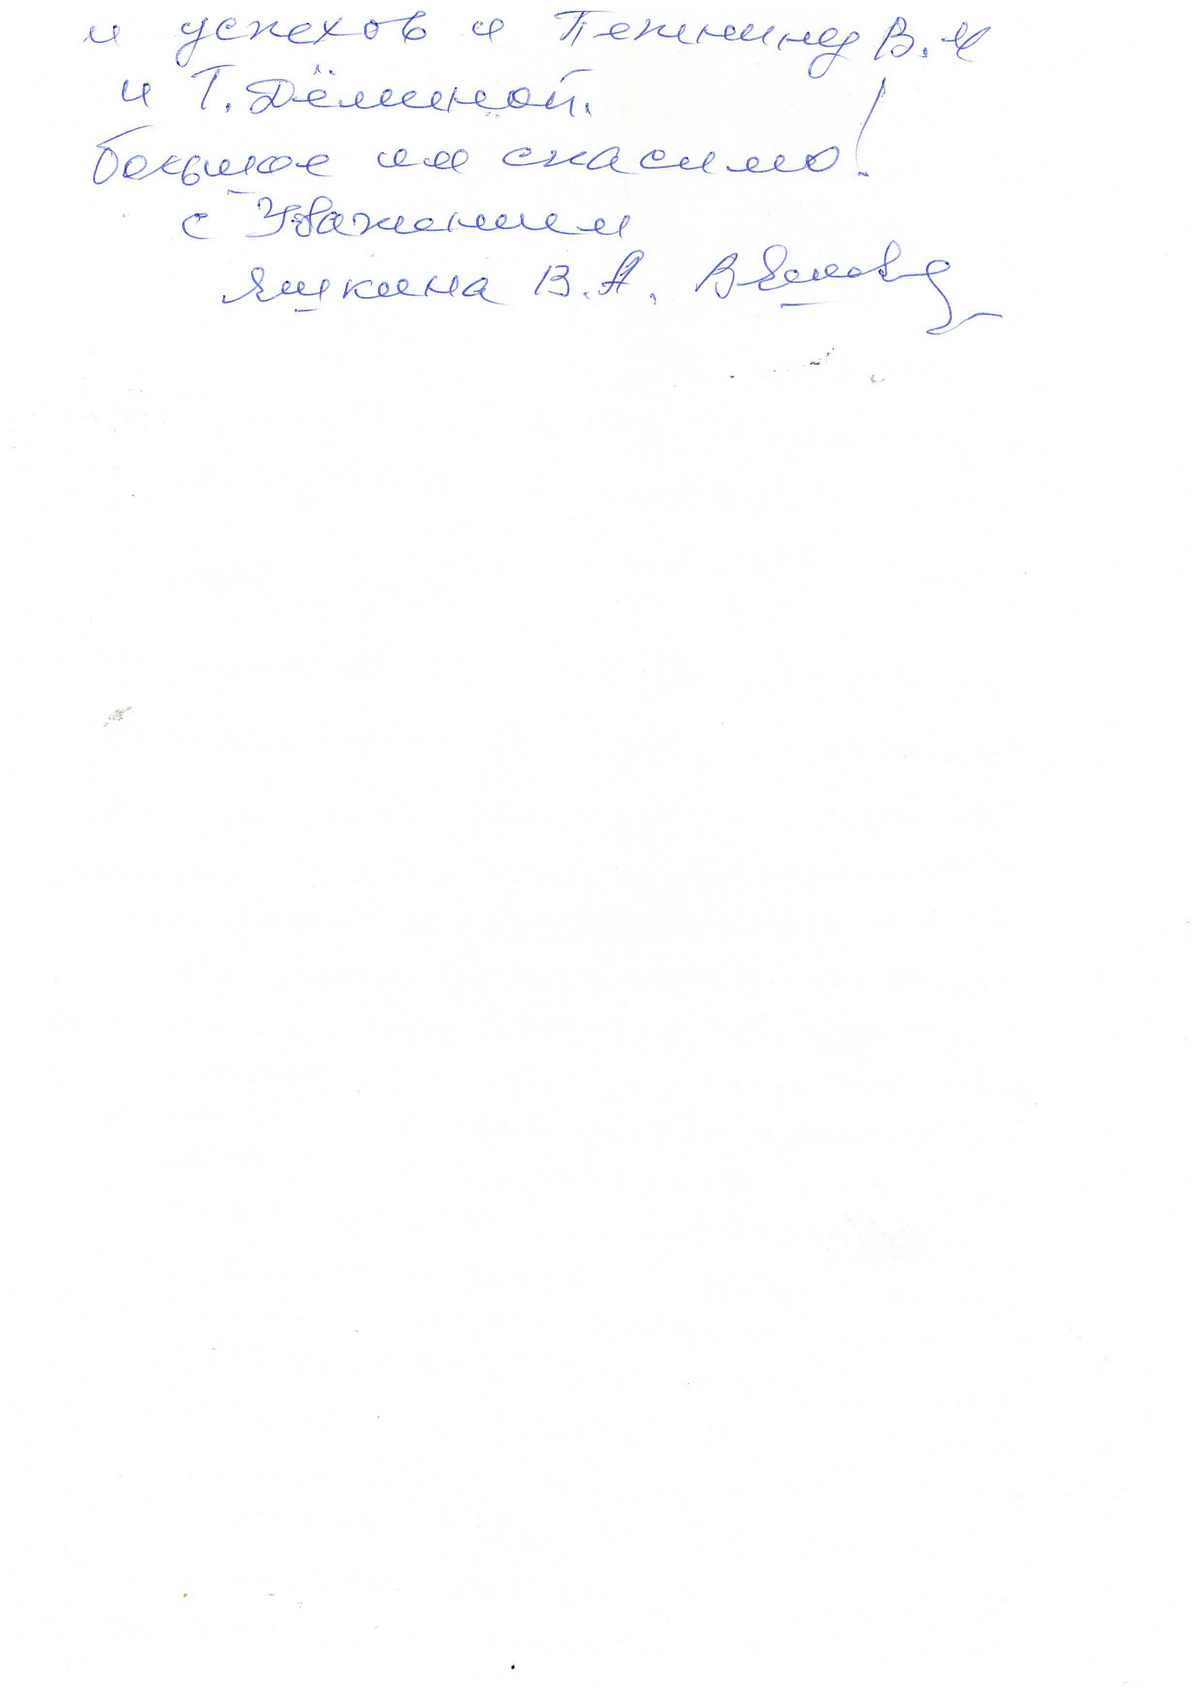 и успехов и Пенкину В.И
и Т. Дёминой.
большое им спасибо!
с Уважением
Яшкина В.А.